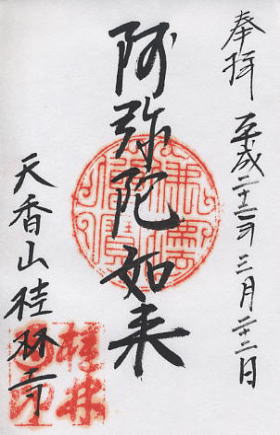 奉拝 平成二十二年三月二十二日
阿弥陀如来
天香山桂林寺